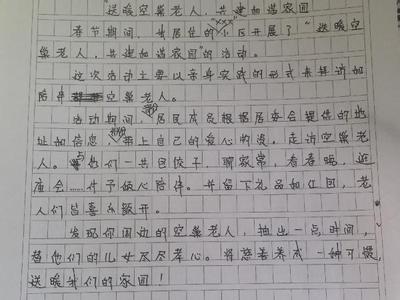 "送暖空巢老人,共建和谐家园
春节期间,我居住的"xxx"小区开展了"送暖空
巢老人,共建和谐家园"的活动。
这次活动主要以亲身实践的形式来拜访和
陪伴空巢老人。
活动期间,居民成员根据居委会提供的地
址和信息,带上自己的爱心物资,走访空巢老
人。与他们一共包饺子,聊家常,看春晚,逛
庙会……给予放心陪伴。并留下礼品和红包,老
人们皆喜乐颜开。
发现你周边的空巢老人,抽出一点时间,
替他们的儿女尽尽孝心。将慈善养成一种习惯,
送暖我们的家园!